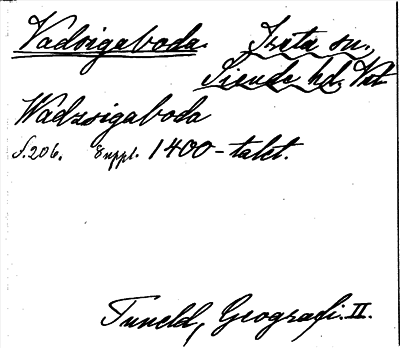 Vadsigaboda. Irsta sn.
Siende hd. Vstm
Wadzsigaboda
s. 206. Suppl. 1400-talet.
Tuneld, Geografi. II.